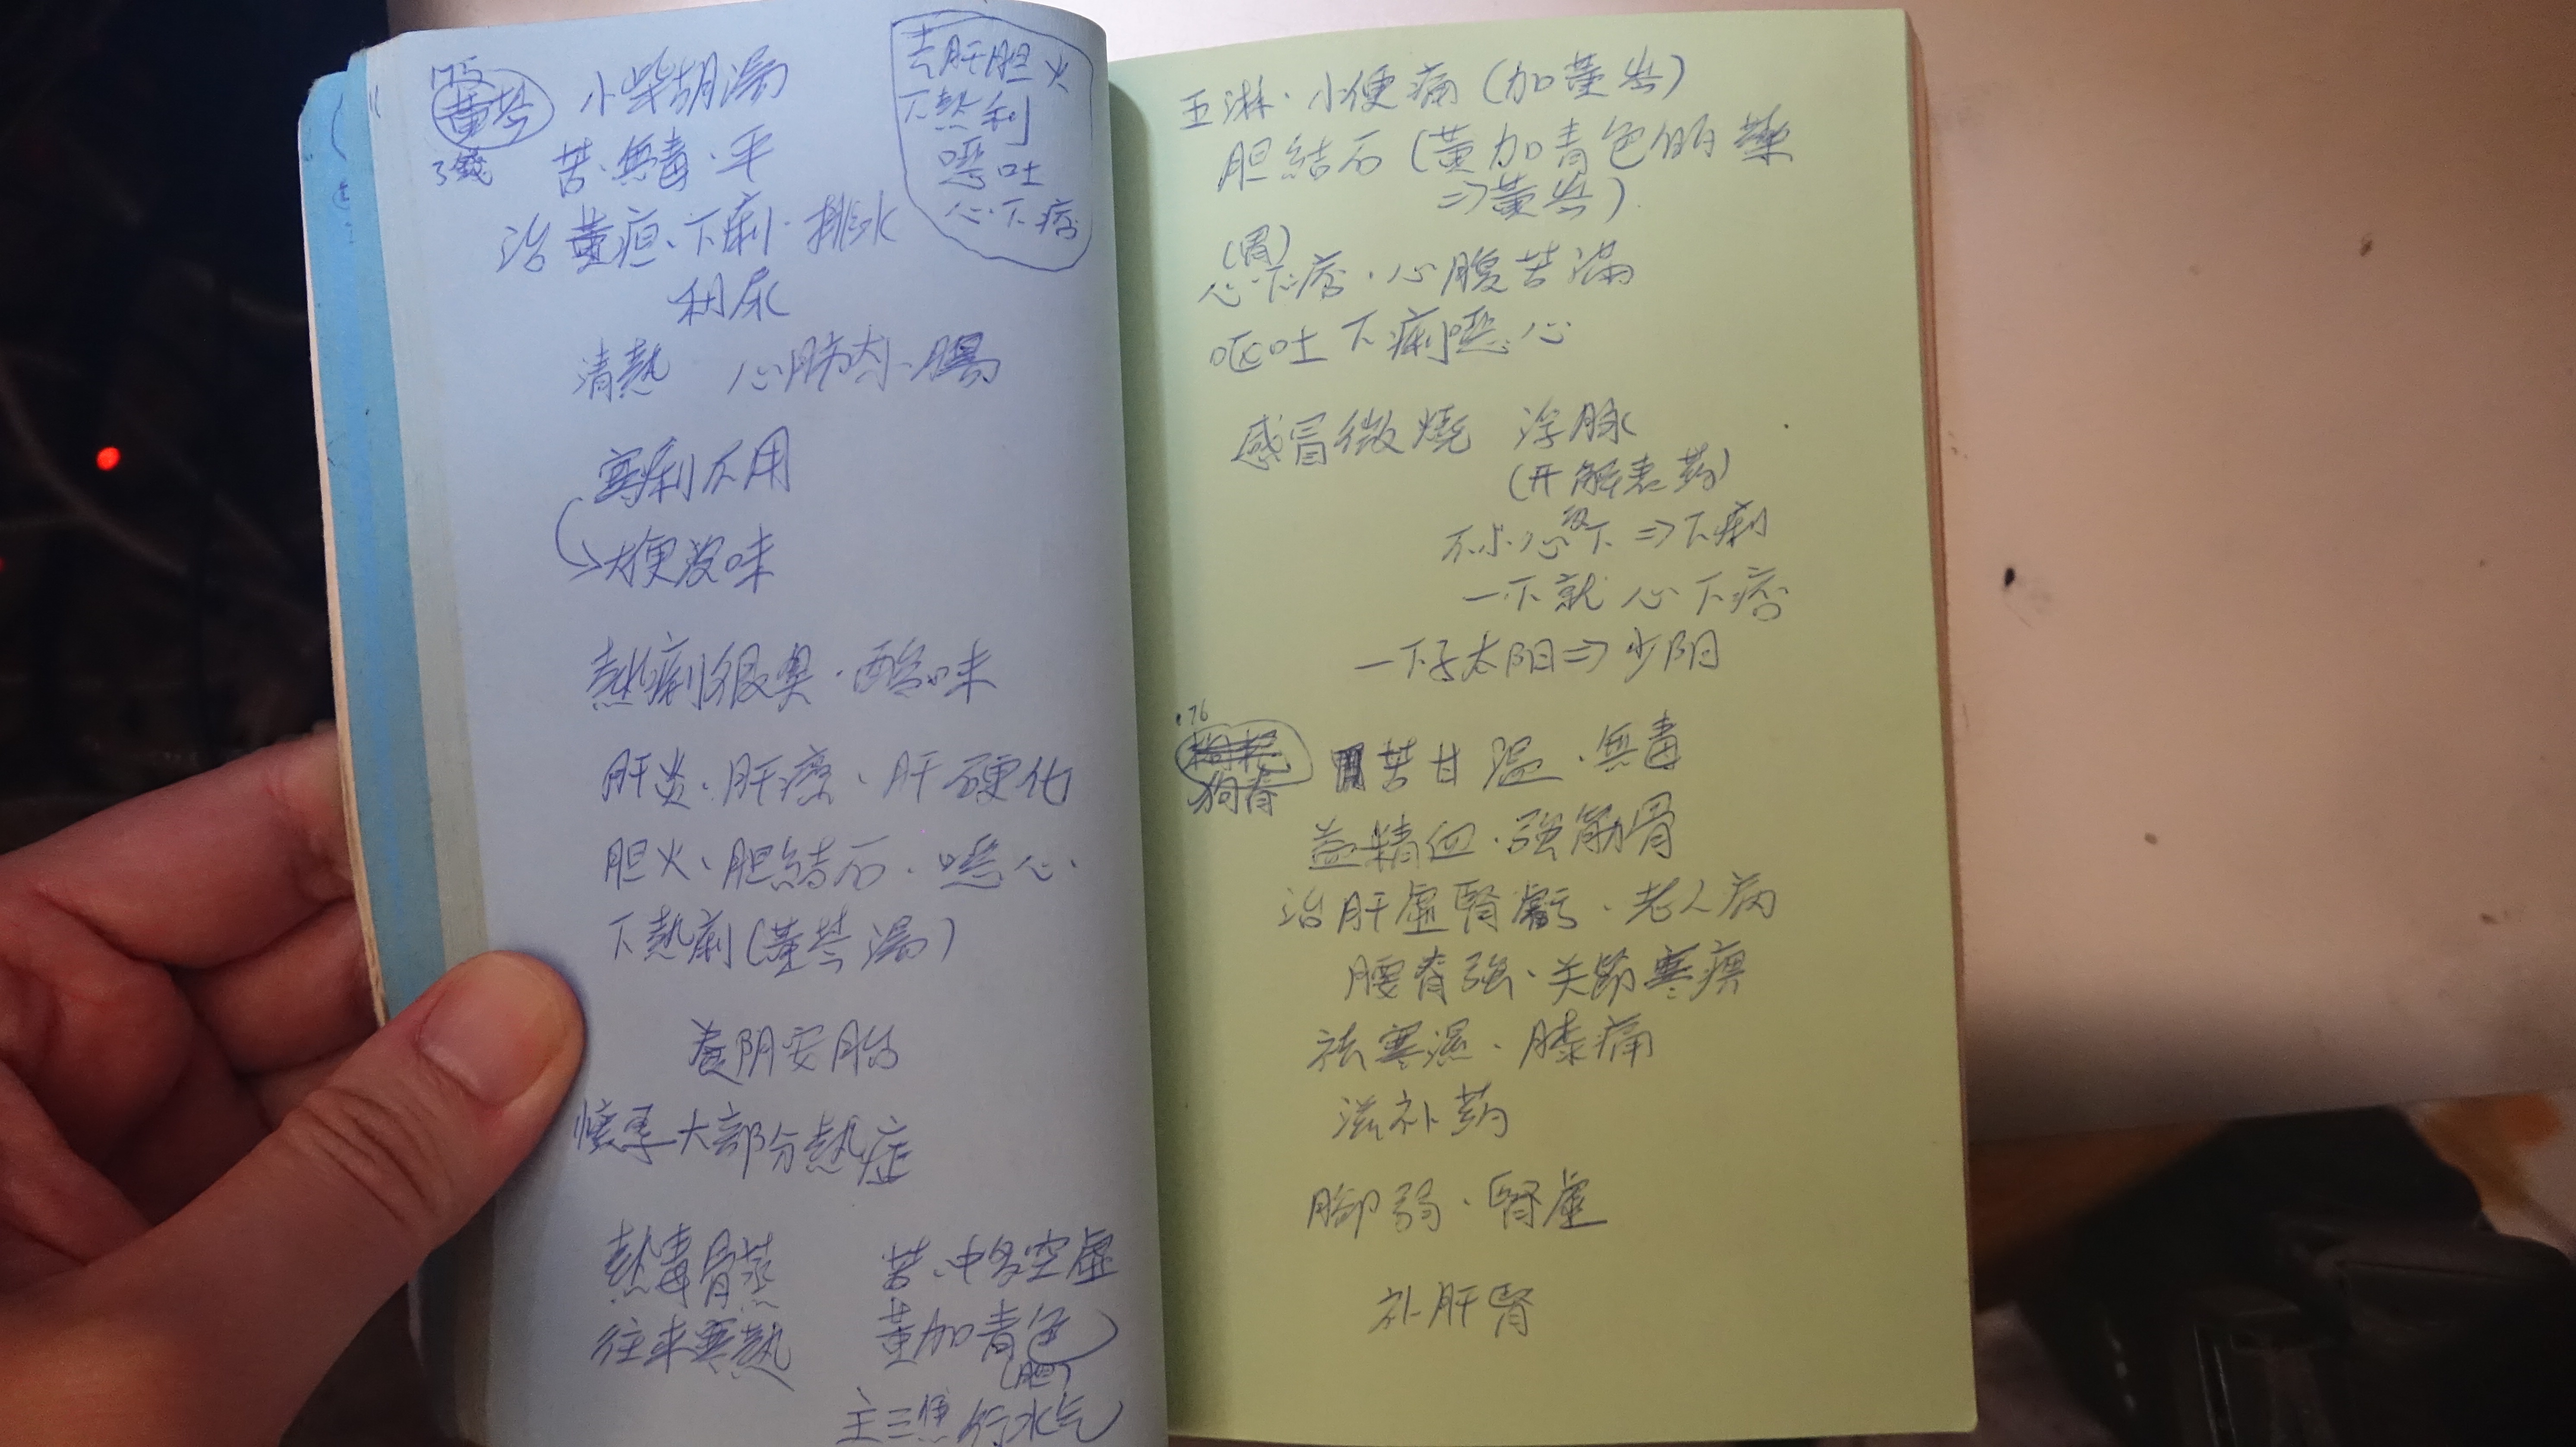 175
黃芩 小柴胡湯
3錢 苦、無毒、平
治黃疸、下痢、排水
利尿
去肝胆火
下熱利
噁吐
心下痞
清熱 心肺大小腸
寒痢不用
→大便沒味
熱痢很臭、酸味
肝炎、肝癌、肝硬化
胆火、胆結石、噁心、
下熱痢(黃芩湯)
養阴安胎
懷孕大部分熱症
熱毒骨蒸
往来寒熱
苦、中多空虛
黃加青色
(胆)
主三焦行水气
五淋、小便痛(加黃芩)
胆結石(黃加青色的藥
⇒黃芩)
(胃)
心下痞、心腹苦滿
嘔吐下痢噁心
感冒微燒 浮脉
(开解表药)
不小心攻下⇒下痢
一下就心下痞
一下子太阳⇒少阴
176
狗脊 苦甘溫、無毒
益精血、強筋骨
治肝虛腎虧、老人病
腰脊強、关節寒痹
祛寒濕、膝痛
滋补药
腳弱、腎虛
补肝腎